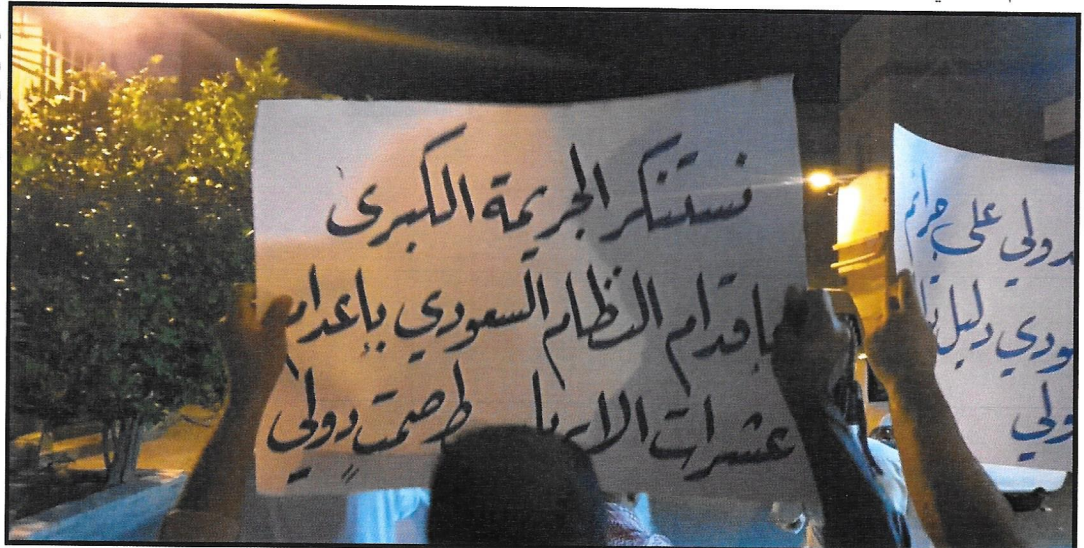 نستنكر الجريمة الكبرى
باقدام النظام السعودي بإعدام
عشرات صمت دولي
دولي على جرائم
دليل